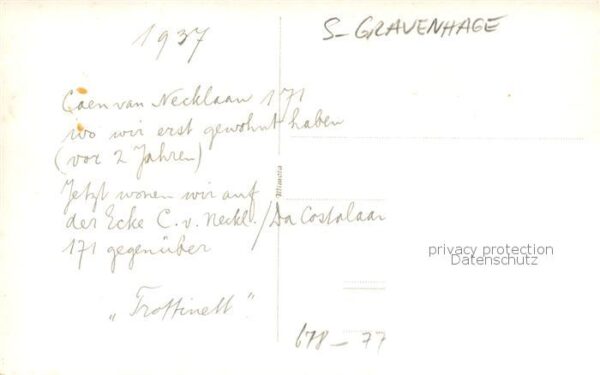 1937
S- GRAVENHAGE
Caen van Necklaan 171
wo wir erst gewohnt haben
(vor 2 Jahren)
Jetzt wonen wir auf
der Ecke C. v. Neckl. / Da Costalaan
171 gegenüber
„Trottinett"
Mimosa
privacy protection
Datenschutz
678-77